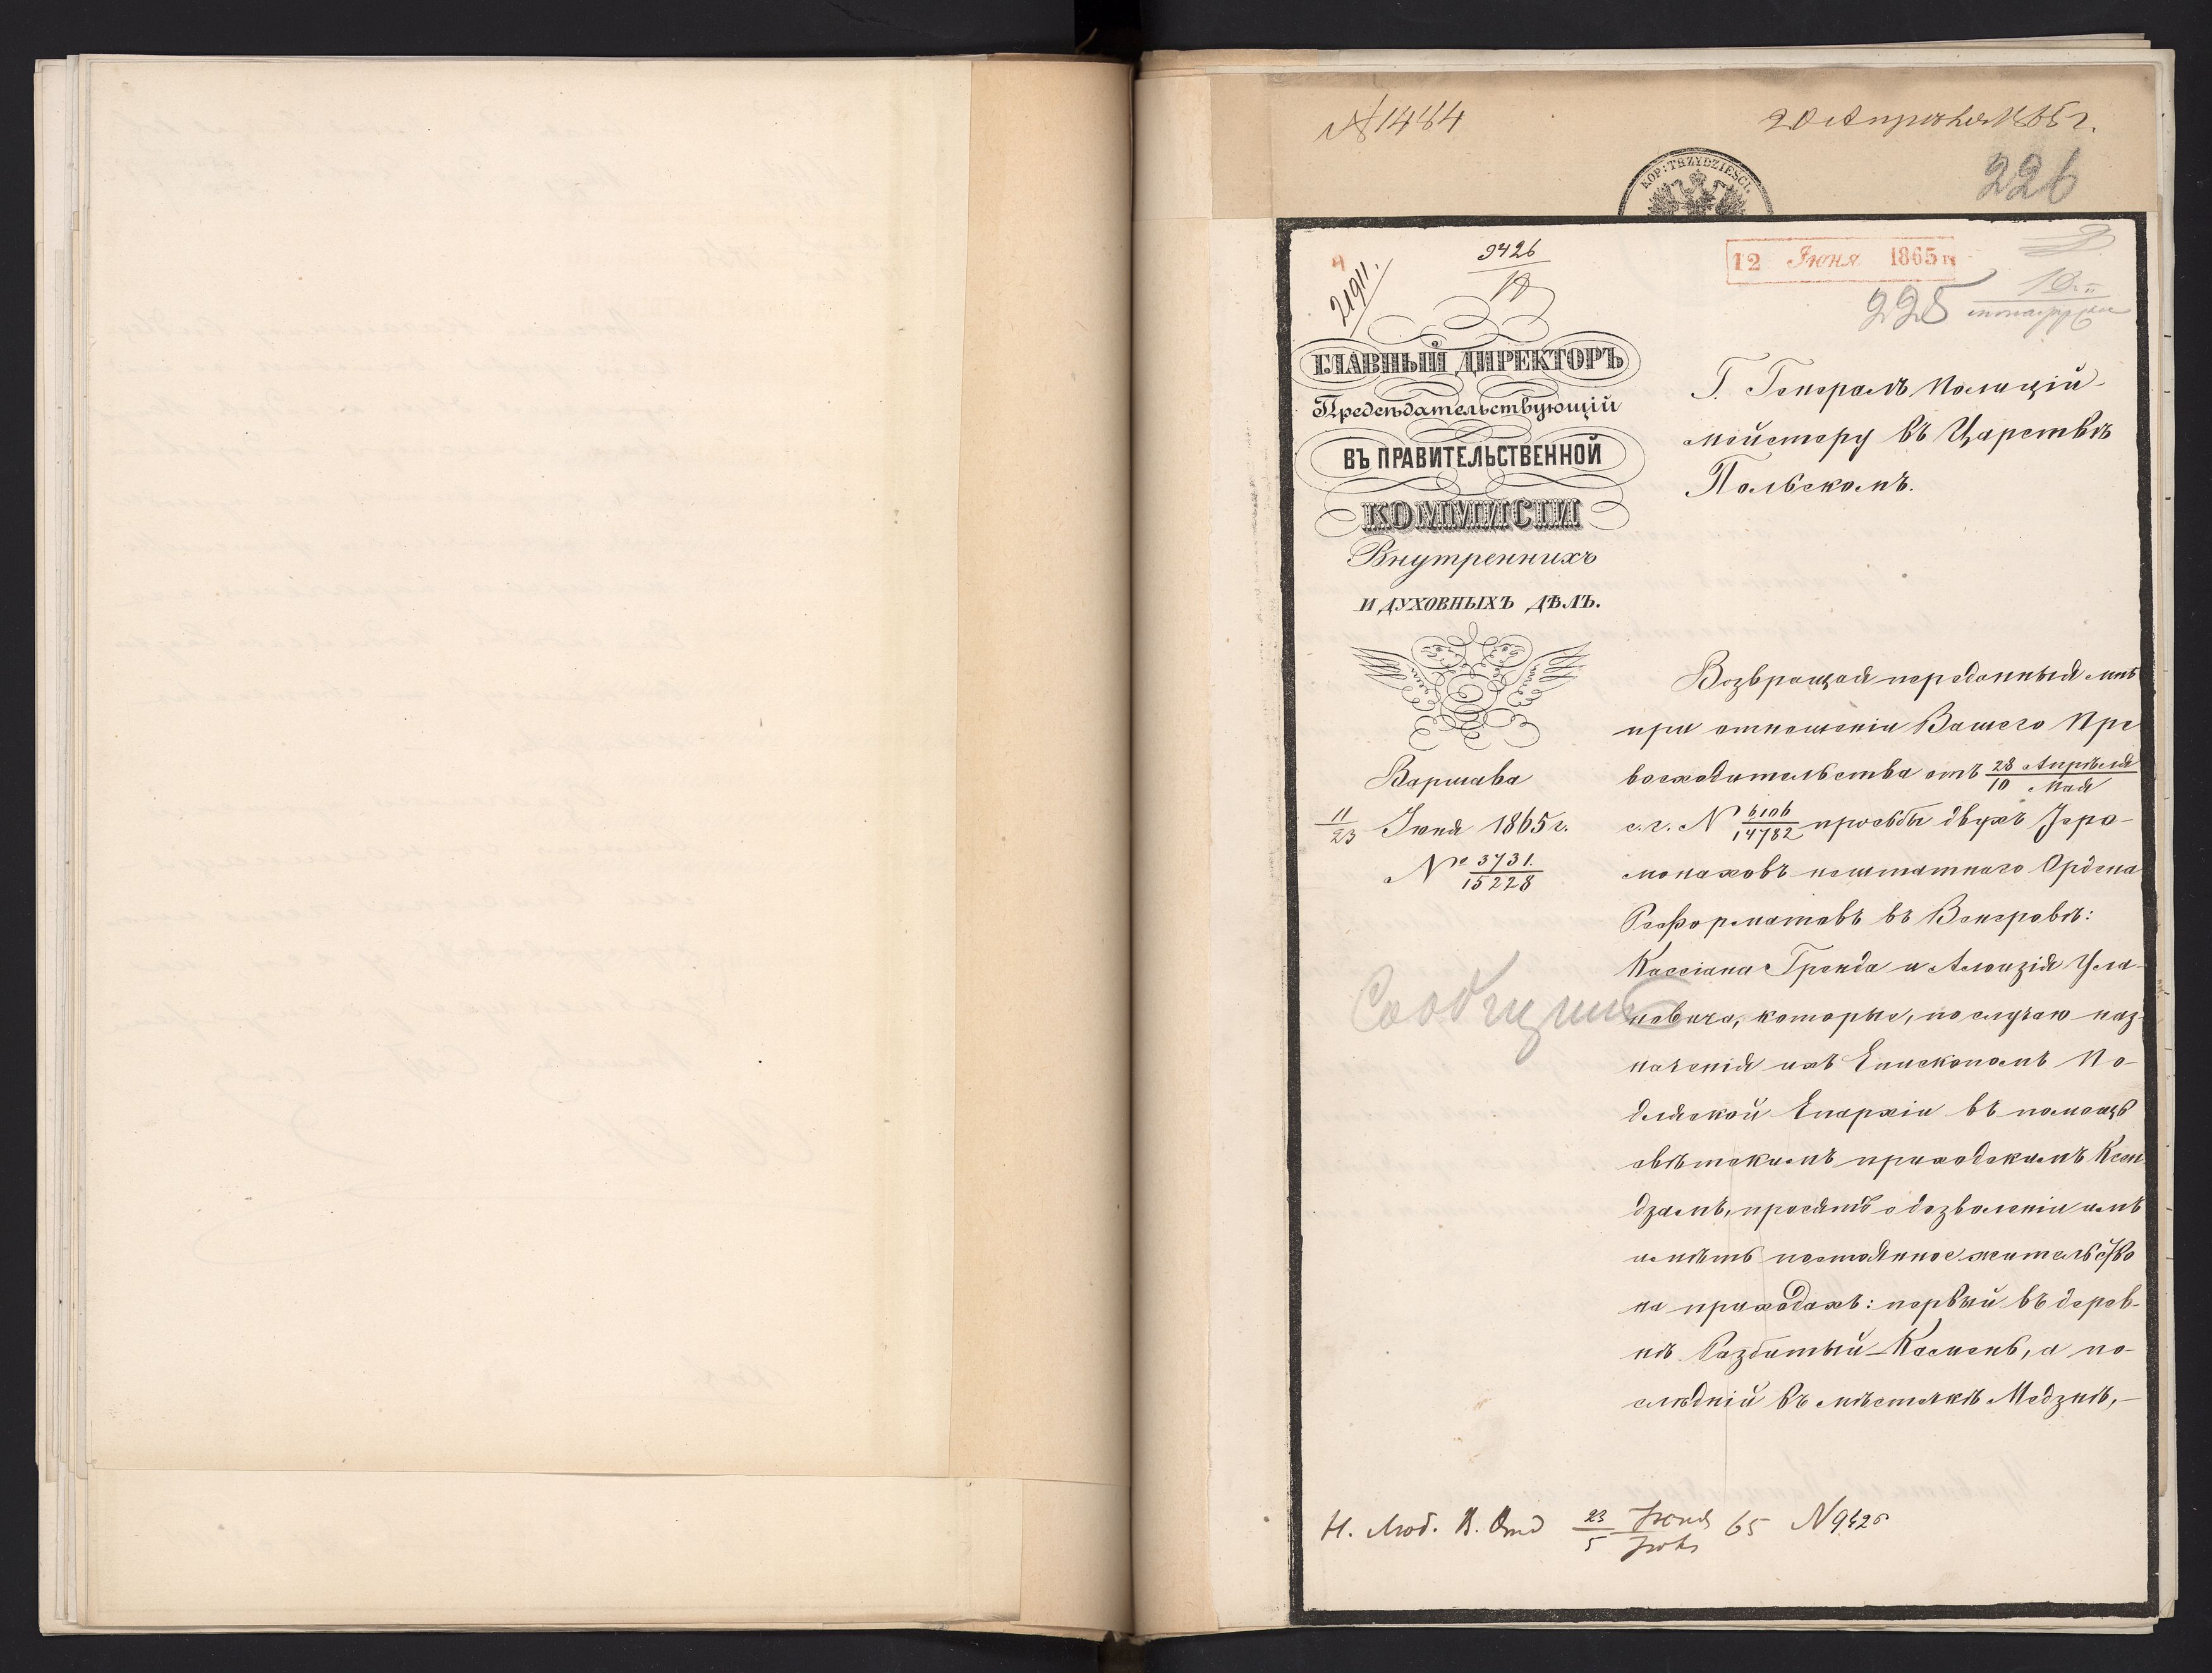 № 1484
20 Апрѣля 1865 г.
KOP: TRZYDZIEŚCI.
226
9426
21911.
12 Іюня 1865 г.
225
ГЛАВНЫЙ ДИРЕКТОРЪ
Предсѣдательствующій
ВЪ ПРАВИТЕЛЬСТВЕННОЙ
КОММИСІИ
Внутреннихъ
И ДУХОВНЫХЪ ДѢЛЪ.
Варшава
11/23 Іюня 1865 г.
№ 3731./15228
Г. Генералъ Полицій-
мейстеру въ Царствѣ
Польскомъ.
Возвращая переданныя мнѣ
при отношеніи Вашего Пре
восходительства отъ 28 Апрѣля/10 Мая
с. г. № 6106/14782 просьбы двухъ Іеро-
монаховъ нештатнаго Ордена
Реформатовъ въ Венгровѣ:
Кассіана Гренда и Алоизія Ула-
новича, которые, по случаю наз-
наченія ихъ Епископомъ По-
дляской Епархіи въ помощь
свѣтскимъ приходскимъ Ксен-
дзамъ, просятъ о дозволеніи имъ
имѣть постоянное жительство
на приходахъ: первый въ дерев-
нѣ Разбитый-Камень, а по-
слѣдній въ мѣстечкѣ Медзнѣ,-
Сообщить
Н. Люб. В. Отд 23 Іюня/5 Іюля 65 N 9426